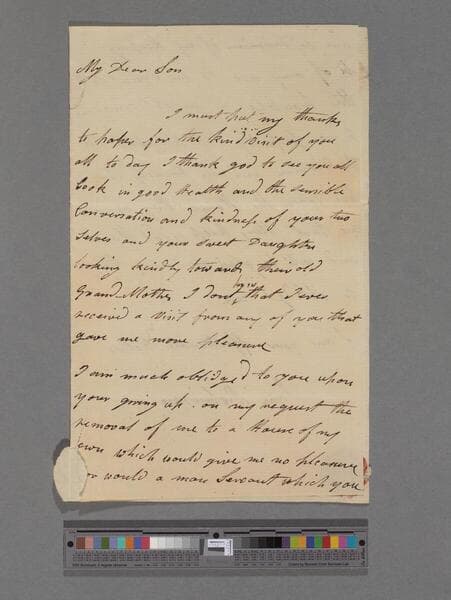 My Dear Son
I must put my thanks
to paper for the kind Visit of you
all to day I thank god to see you all
look in good Health and the sensible
Conversation and kindness of your two
selves and your sweet Daughters
looking kindly towards their old
Grand Mother I dont that I ever
received a Visit from any of you that
gave me more pleasure
I am much oblidged to you upon
your giving up on my request the
removal of me to a House of my
own which would give me no pleasure
would a man Servant which you